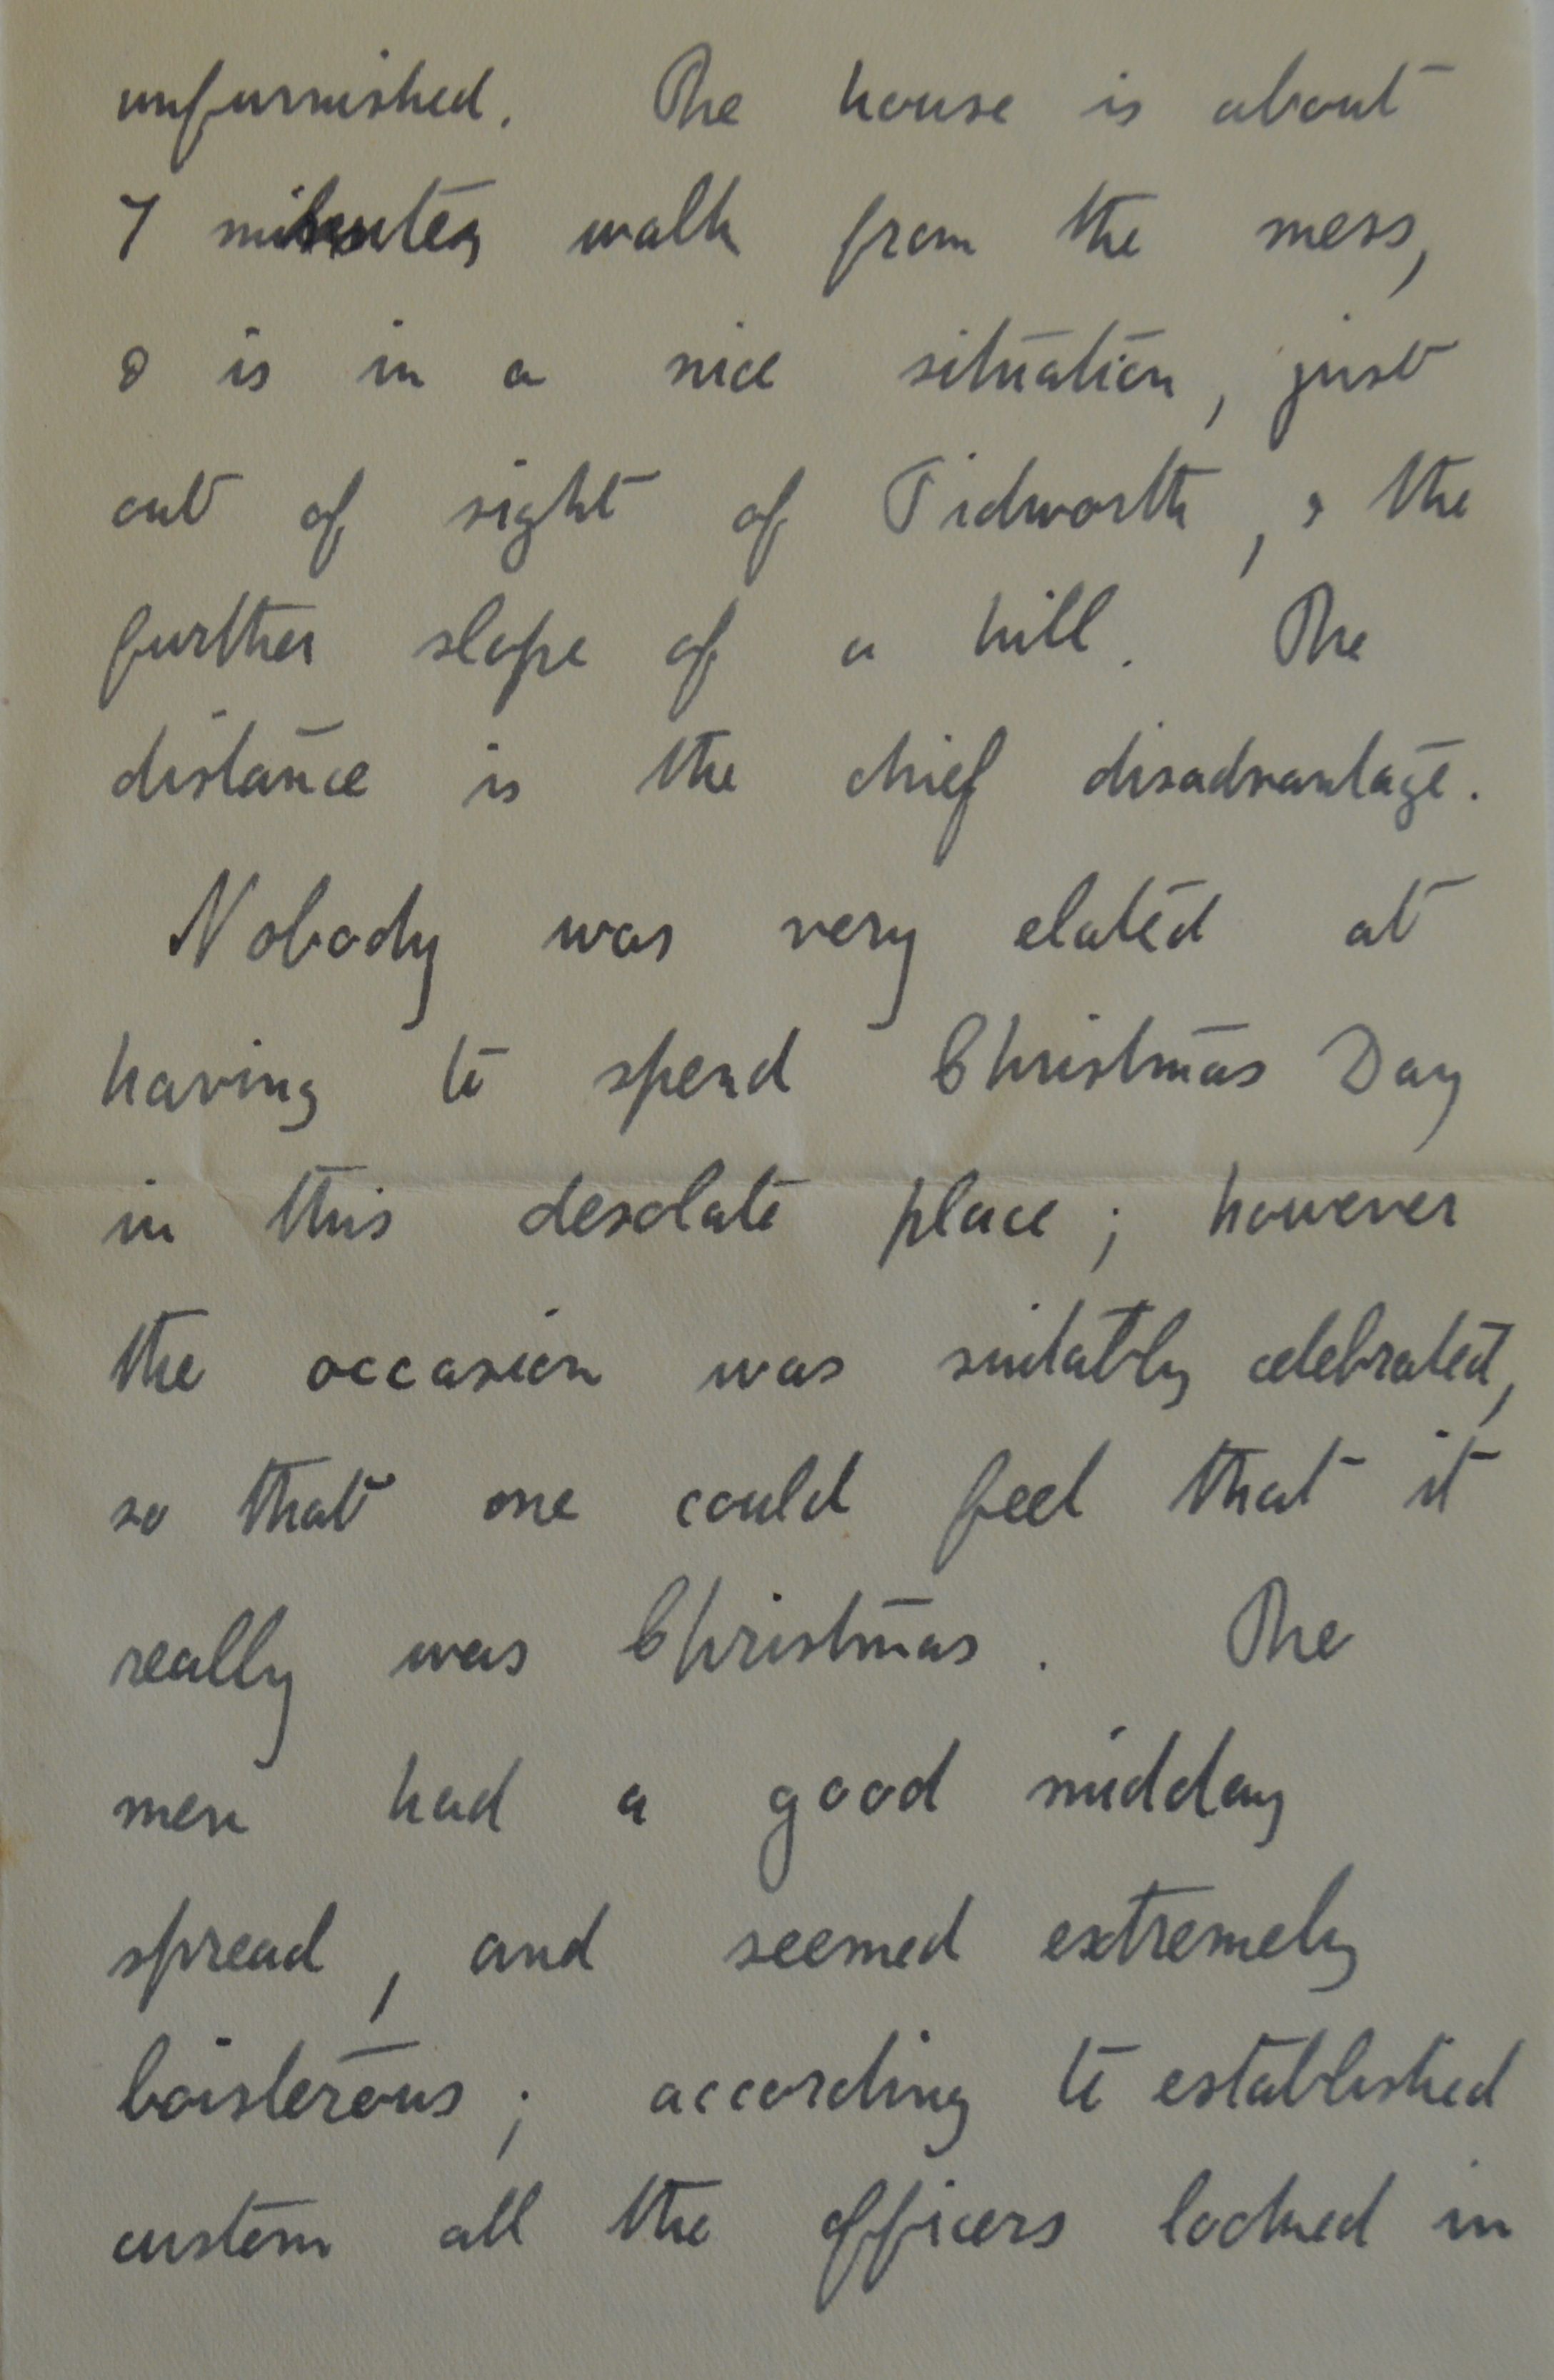 unfurnished. The house is about
7 minutes walk from the mess,
& is in a nice situation, just
out of sight of Tidworth, & the
further slope of a hill. The
distance is the chief disadvantage.
Nobody was very elated at
having to spend Christmas Day
in this desolate place; however
the occasion was suitably celebrated,
so that one could feel that it
really was Christmas. The
men had a good midday
spread, and seemed extremely
boisterous; according to established
custom all the officers looked in